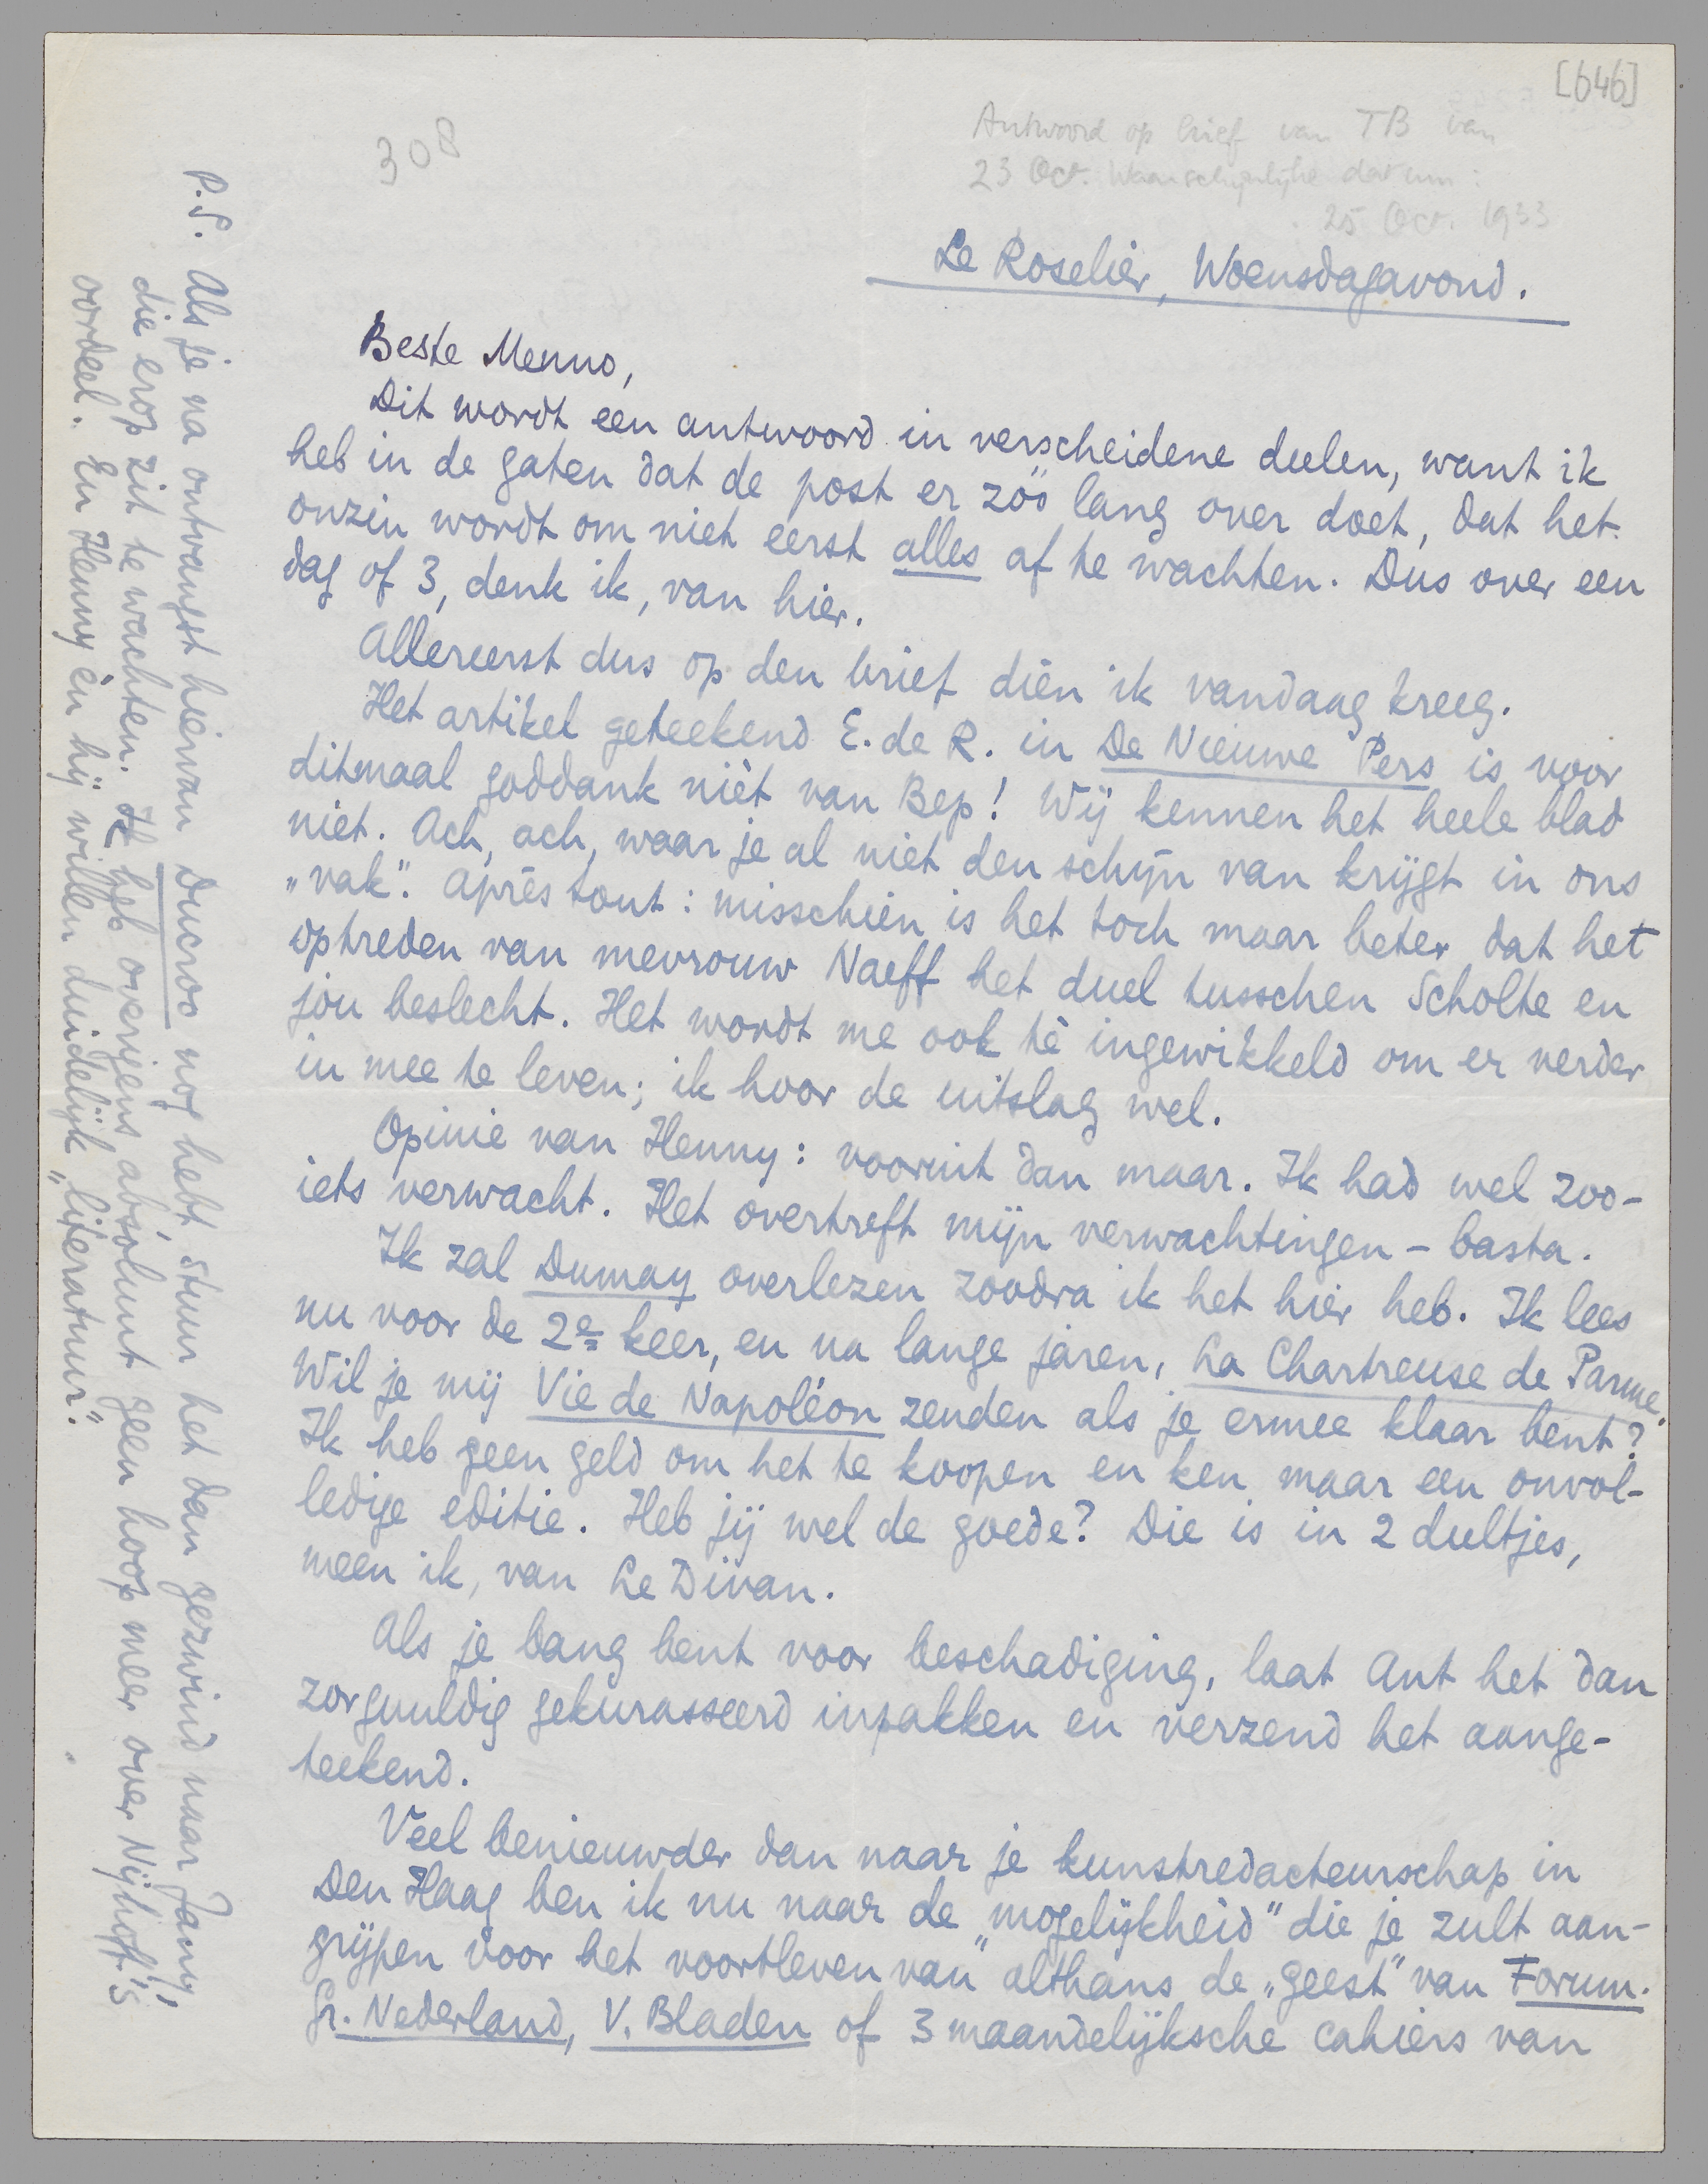 [646]
308
Antwoord op brief van TB van
23 Oct. Waarschijnlijke datum:
25 Oct. 1933
Le Roselier, Woensdagavond.
Beste Menno,
Dit wordt een antwoord in verscheidene deelen, want ik
heb in de gaten dat de post er zóó lang over doet, dat het
onzin wordt om niet eerst alles af te wachten. Dus over een
dag of 3, denk ik, van hier.
Allereerst dus op den brief dièn ik vandaag kreeg.
Het artikel geteekend E. de R. in De Nieuwe Pers is voor
ditmaal goddank nièt van Bep! Wij kennen het heele blad
niet. Ach, ach, waar je al niet den schijn van krijgt in ons
„vak”. Après tout: misschien is het toch maar beter dat het
optreden van mevrouw Naeff het duel tusschen Scholte en
jou beslecht. Het wordt me ook tè ingewikkeld om er verder
in mee te leven; ik hoor de uitslag wel.
Opinie van Henny: vooruit dan maar. Ik had wel zoo-
iets verwacht. Het overtreft mijn verwachtingen – basta.
Ik zal Dumay overlezen zoodra ik het hier heb. Ik lees
nu voor de 2e keer, en na lange jaren, La Chartreuse de Parme.
Wil je mij Vie de Napoléon zenden als je ermee klaar bent?
Ik heb geen geld om het te koopen en ken maar een onvol-
ledige editie. Heb jij wel de goede? Die is in 2 deeltjes,
meen ik, van Le Divan.
Als je bang bent voor beschadiging, laat Ant het dan
zorgvuldig gekurasseerd inpakken en verzend het aange-
teekend.
Veel benieuwder dan naar je kunstredacteurschap in
Den Haag ben ik nu naar de „mogelijkheid” die je zult aan-
grijpen voor het voortleven van althans de „geest” van Forum.
Gr. Nederland, V. Bladen of 3 maandelijksche cahiers van
P.S. Als je na ontvangst hiervan Ducroo nog hebt, stuur het dan gezwind naar Jany,
die erop zit te wachten. Ik heb overigens absoluut geen hoop meer over Nijhoff's
oordeel. En Henny èn hij willen duidelijk „literatuur”.